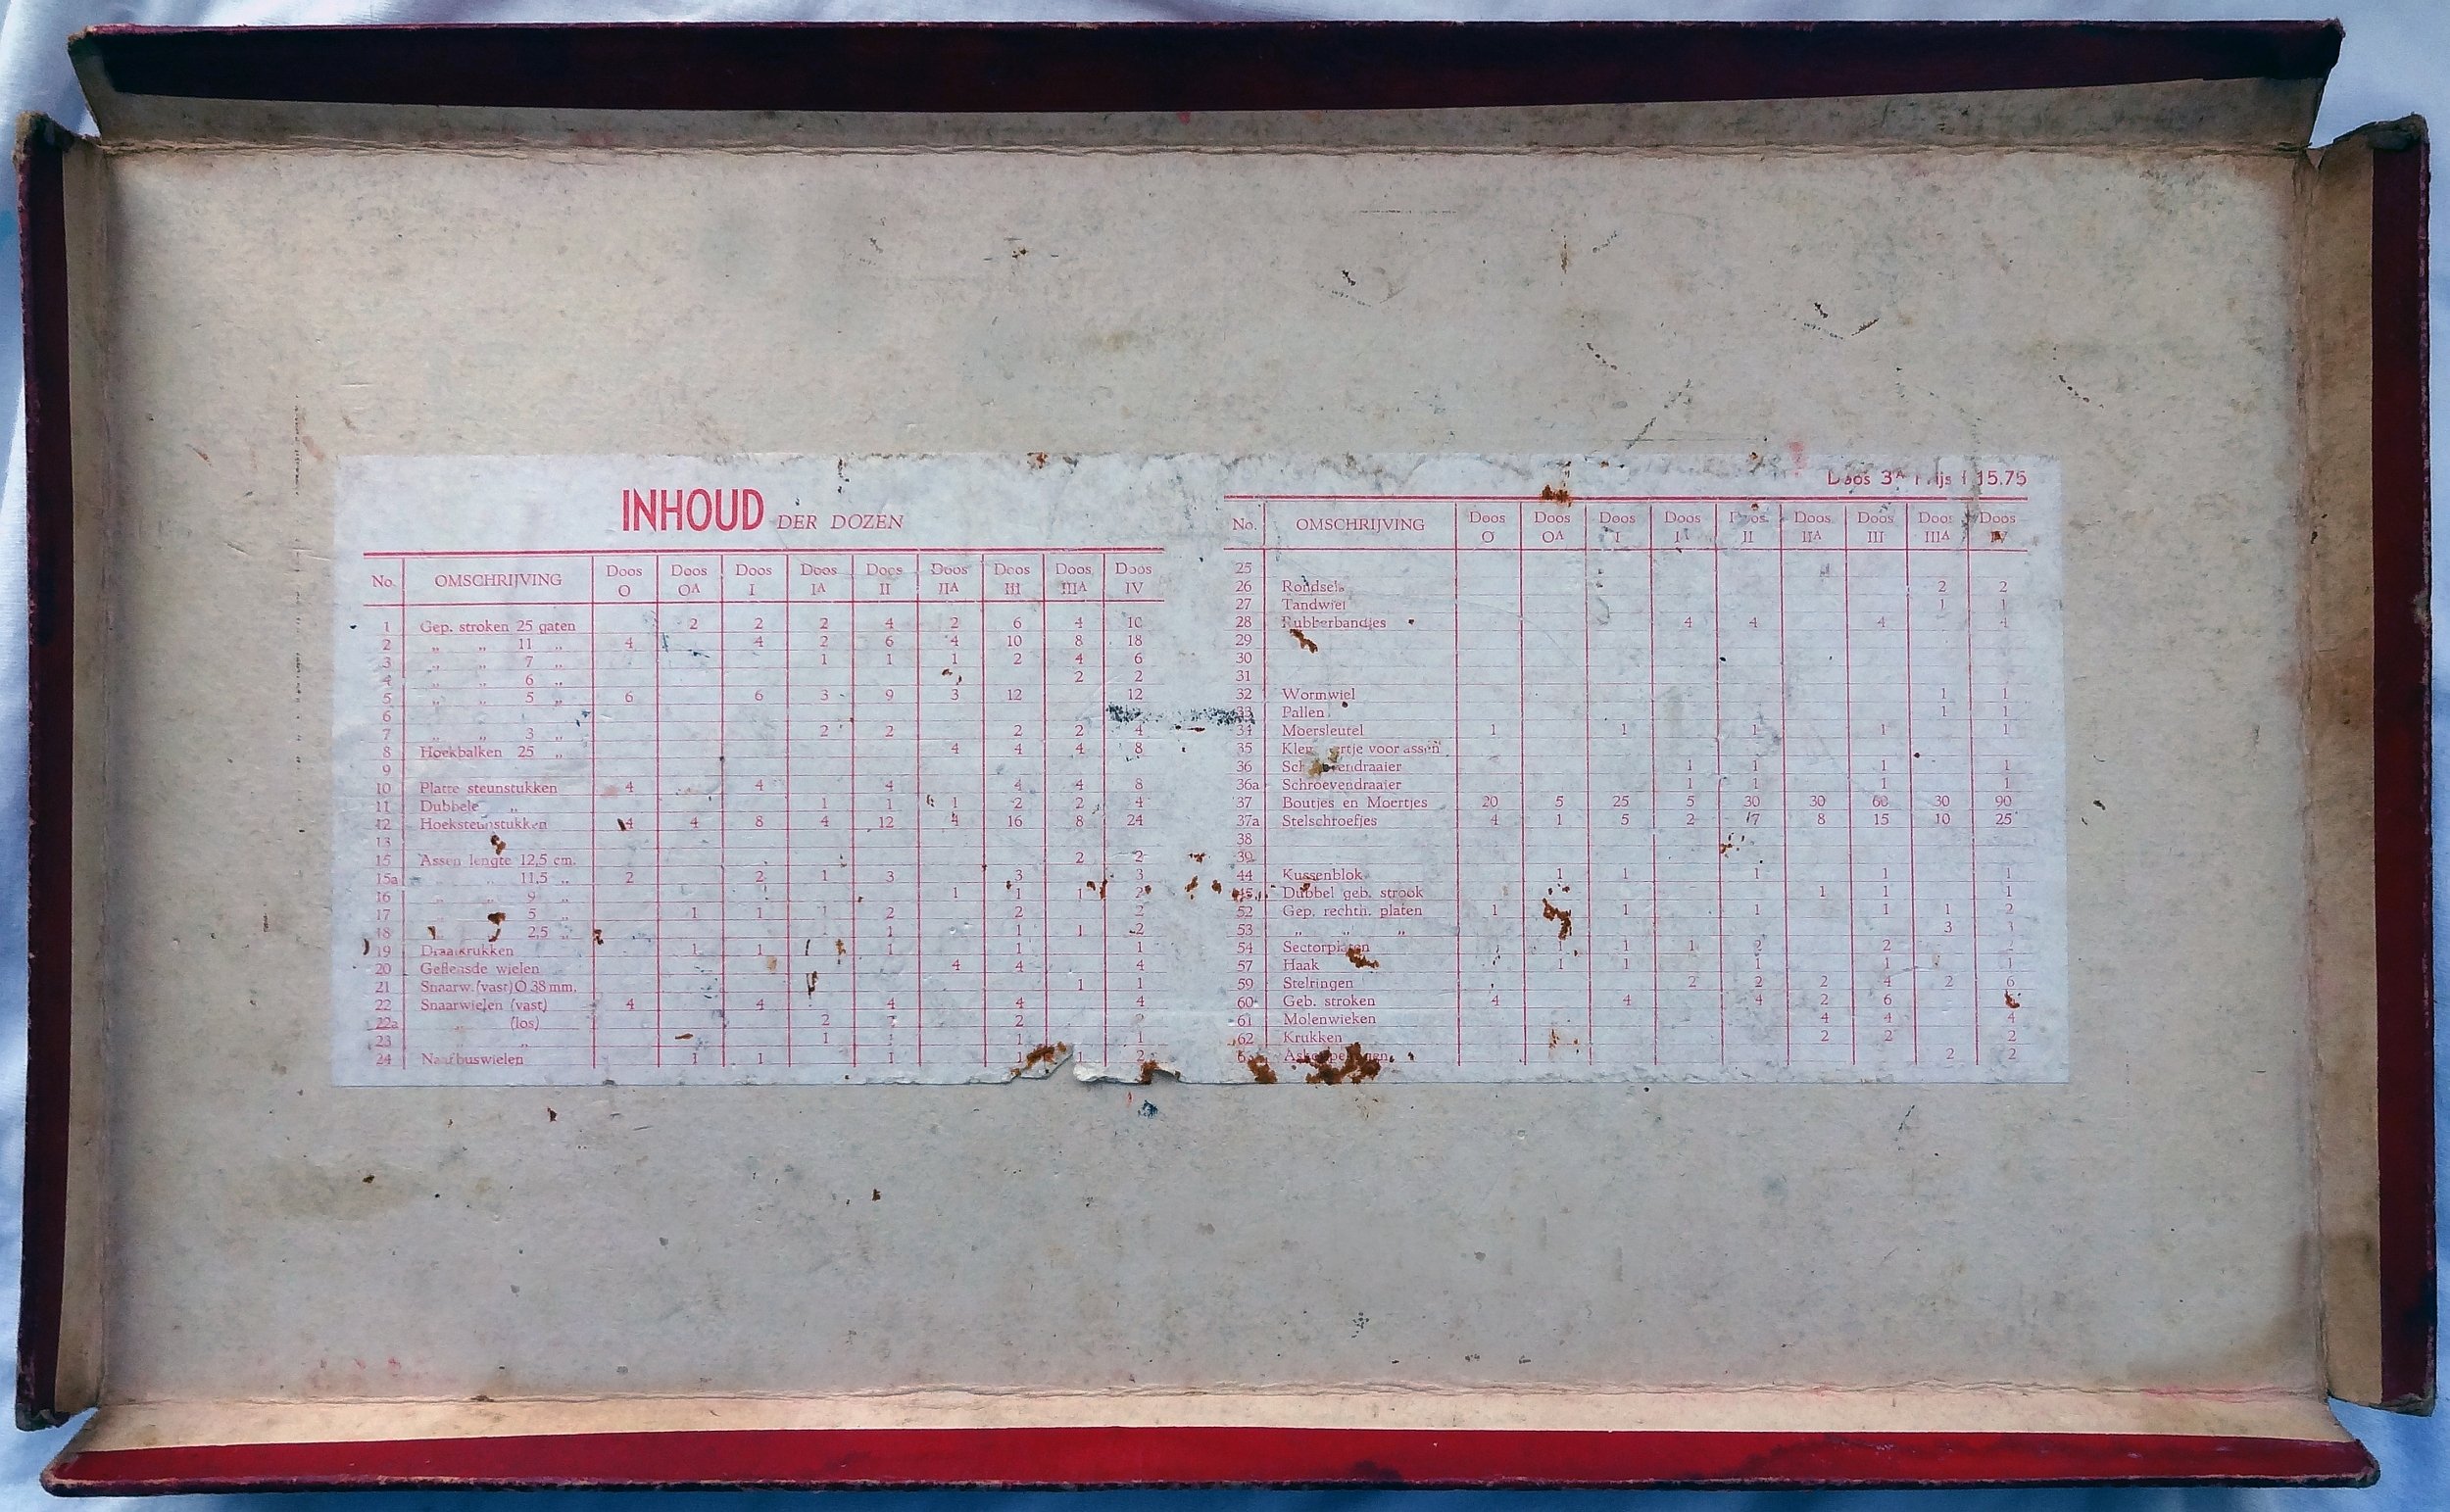 INHOUD DER DOZEN
No. OMSCHRIJVING Doos O Doos OA Doos I Doos IA Doos II Doos IIA Doos III Doos IIIA Doos IV
1 Gep. stroken 25 gaten 2 2 2 4 2 6 4 10
2 „ „ 11 „ 4 4 2 6 4 10 8 18
3 „ „ 7 „ 1 1 1 2 4 6
4 „ „ 6 „ 2 2
5 „ „ 5 „ 6 6 3 9 3 12 12
6
7 „ „ 3 „ 2 2 2 2 4
8 Hoekbalken 25 „ 4 4 4 8
9
10 Platte steunstukken 4 4 4 4 4 8
11 Dubbele „ 1 1 1 2 2 4
12 Hoeksteunstukken 4 4 8 4 12 4 16 8 24
13
15 Assen lengte 12,5 cm. 2 2
15a „ „ 11,5 „ 2 2 1 3 3 3
16 „ „ 9 „ 1 1 1 2
17 „ 5 „ 1 1 1 2 2 2
18 „ „ 2,5 „ 1 1 1 2
19 Draaikrukken 1 1 1 1 1
20 Geflensde wielen 4 4 4
21 Snaarw. (vast) O 38 mm. 1 1
22 Snaarwielen (vast) 4 4 4 4 4
22a „ (los) 2 2
23 „ 1 1 1
24 Naafbuswielen 1 1 1 1 1 2
Doos 3A 15.75
No. OMSCHRIJVING Doos O Doos OA Doos I Doos Doos II Doos IIA Doos III Doos IIIA Doos IV
25
26 Rondsels 2 2
27 Tandwiel 1 1
28 Rubberbandjes 4 4 4 4
29
30
31
32 Wormwiel 1 1
33 Pallen 1 1
34 Moersleutel 1 1 1 1 1
35 voor assen
36 Schroevendraaier 1 1 1 1
36a Schroevendraaier 1 1 1 1
37 Boutjes en Moertjes 20 5 25 5 30 30 60 30 90
37a Stelschroefjes 4 1 5 2 7 8 15 10 25
38
39
44 Kussenblok 1 1 1 1 1
45 Dubbel geb. strook 1 1 1
52 Gep. rechth. platen 1 1 1 1 1 2
53 „ „ „ 3 3
54 Sectorplaten 1 1 2 2 2
57 Haak 1 1 1 1 1
59 Stelringen 2 2 2 4 2 6
60 Geb. stroken 4 4 4 2 6
61 Molenwieken 4 4 4
62 Krukken 2 2 2
2 2